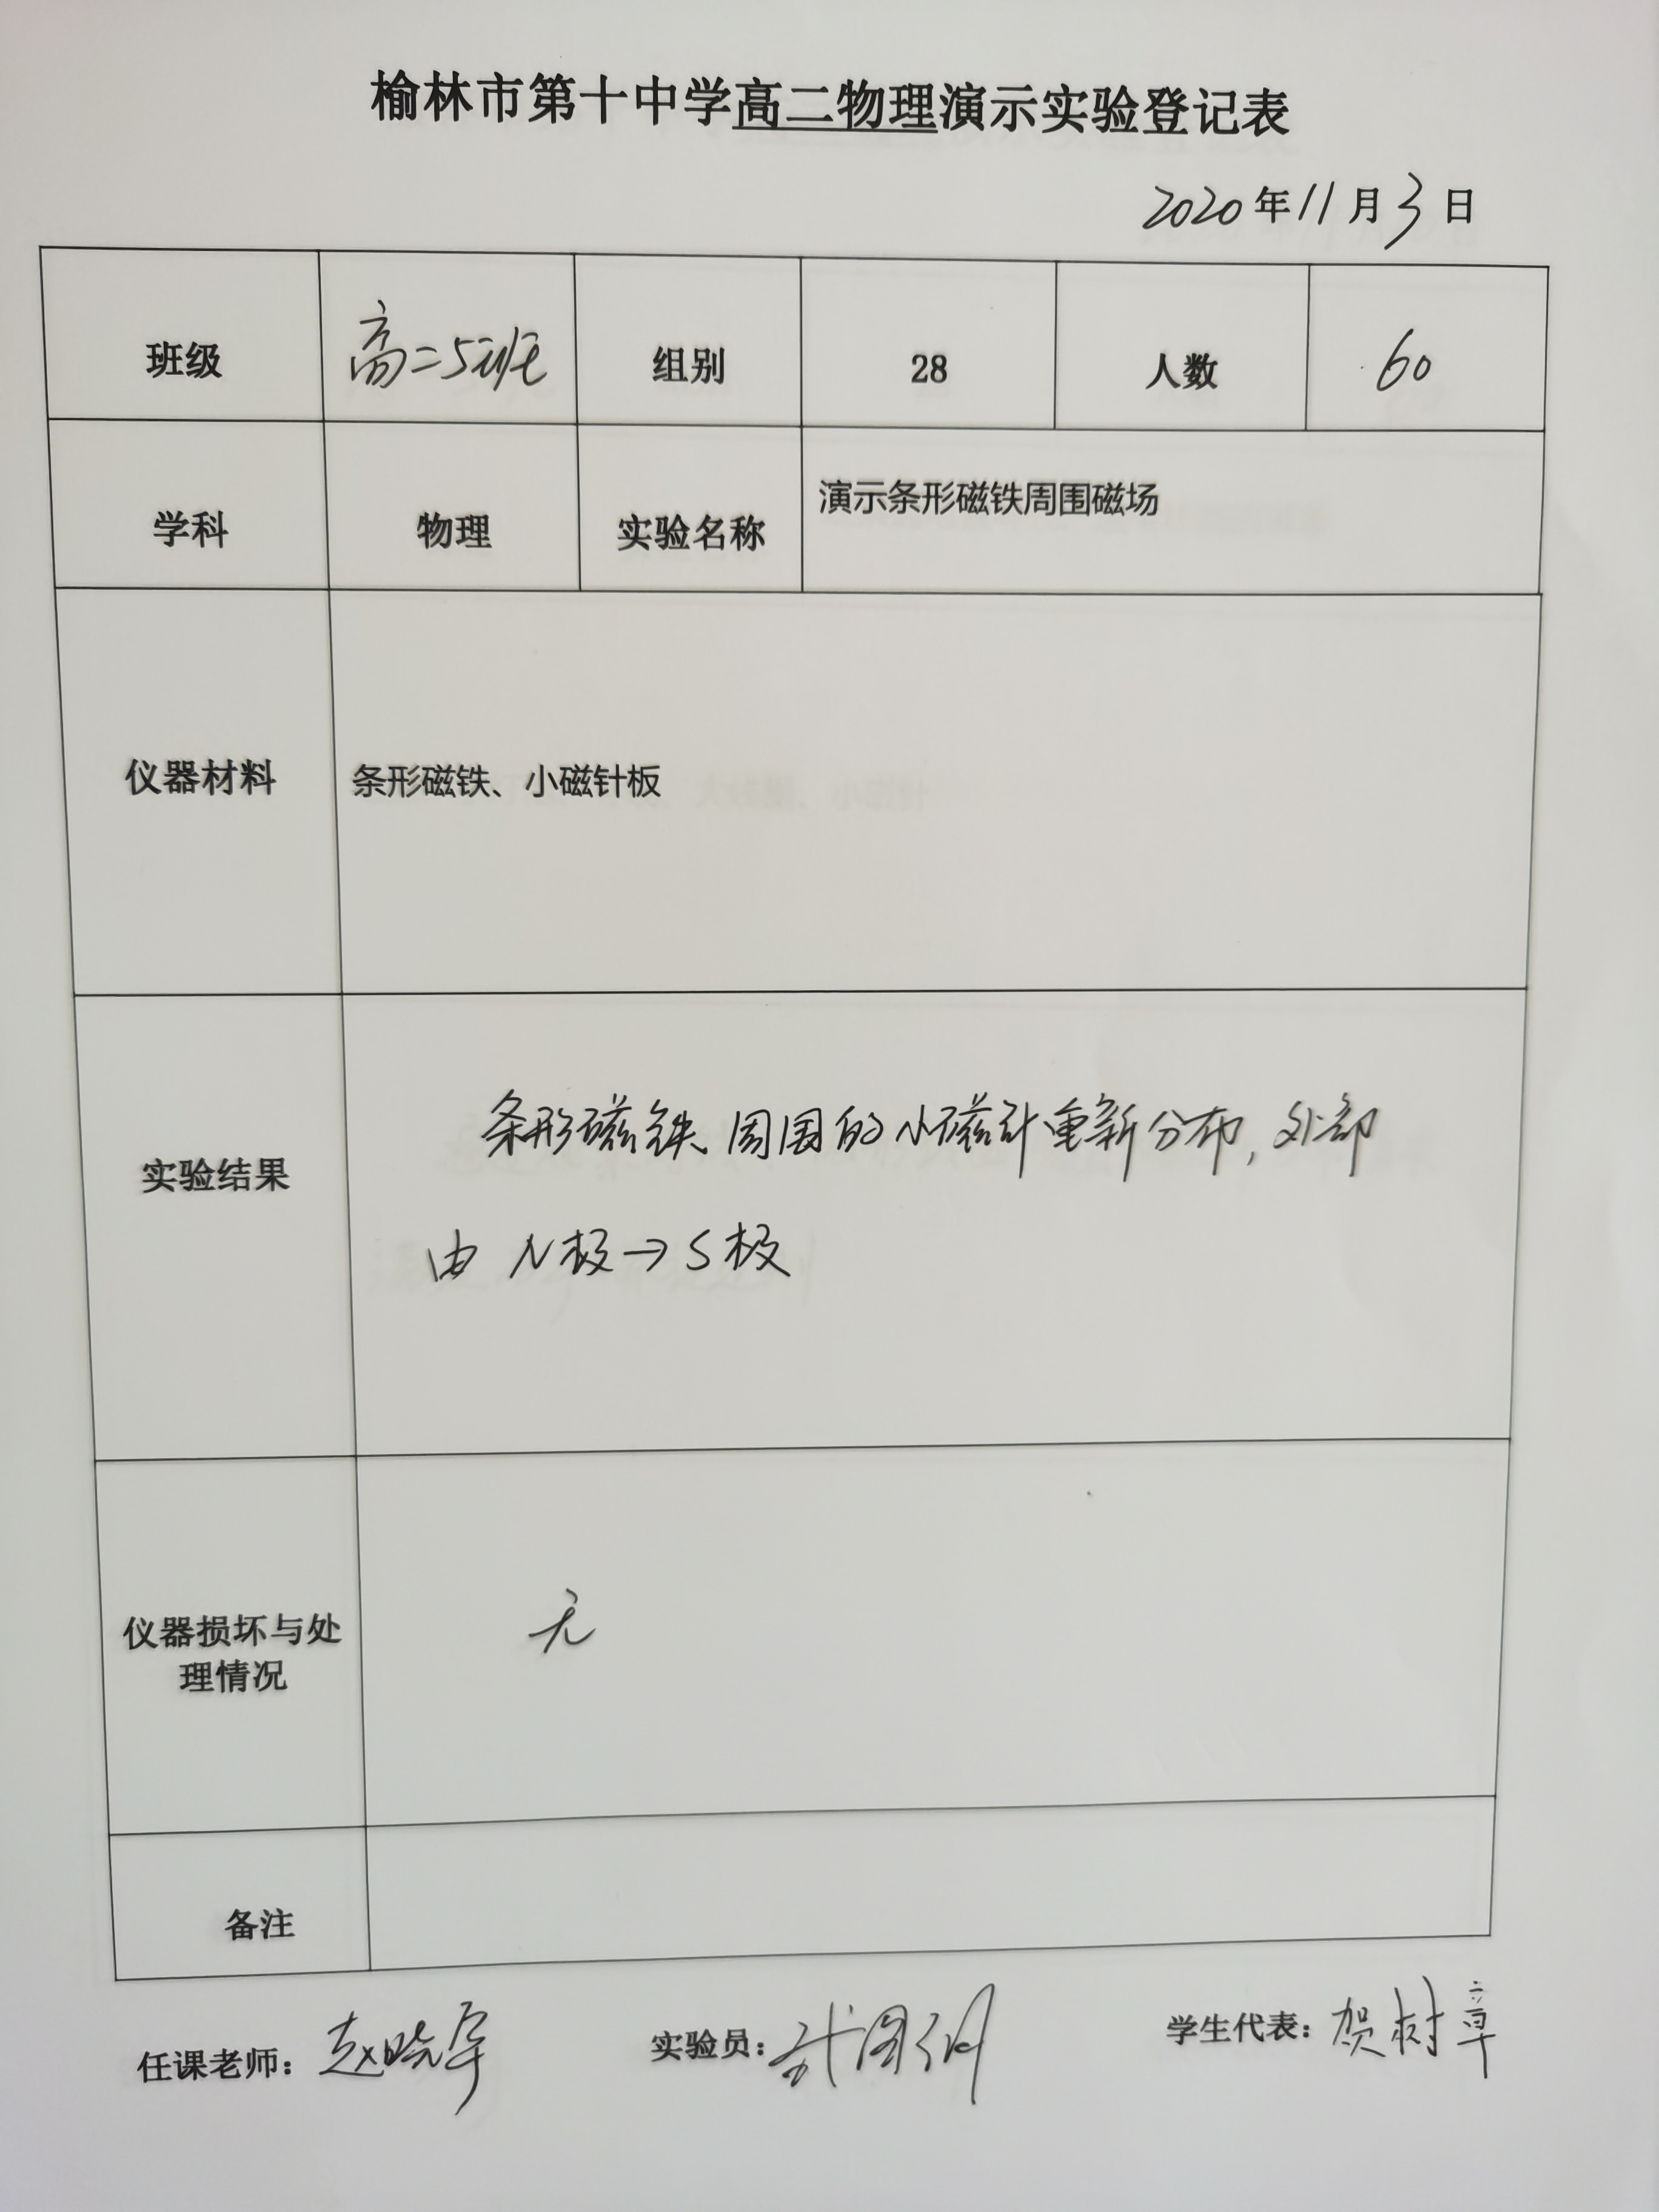 榆林市第十中学高二物理演示实验登记表
2020年11月3日
班级 高二5班 组别 28 人数 60
学科 物理 实验名称 演示条形磁铁周围磁场
仪器材料 条形磁铁、小磁针板
实验结果 条形磁铁周围的小磁针重新分布,外部
由N极→S极
仪器损坏与处
理情况 无
备注
任课老师：赵晓宇 实验员： 学生代表：贺树章